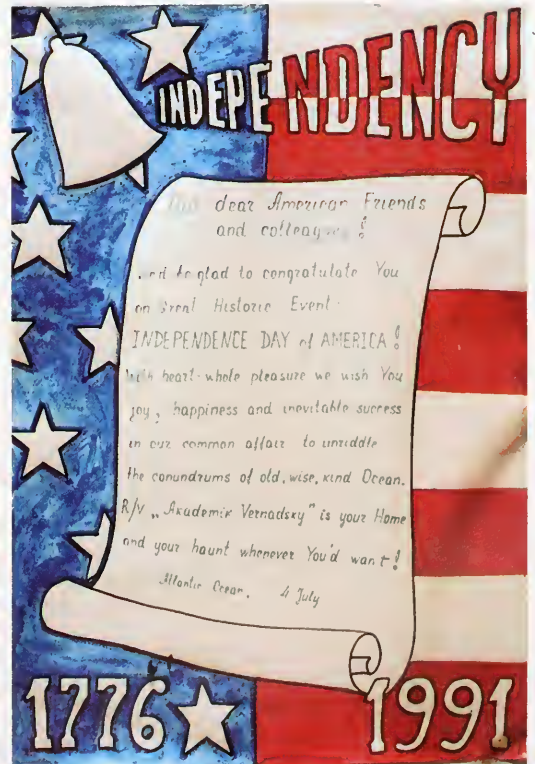 INDEPENDENCY
dear American Friends
and colleagues!
be glad to congratulate You
on Great Historic Event
INDEPENDENCE DAY of AMERICA!
With heart-whole pleasure we wish You
joy, happiness and inevitable success
in our common affair to unriddle
the conundrums of old, wise, kind Ocean.
R/V „Akademik Vernadsky" is your Home
and your haunt whenever You'd want!
Atlantic Ocean. 4 July
1776 1991